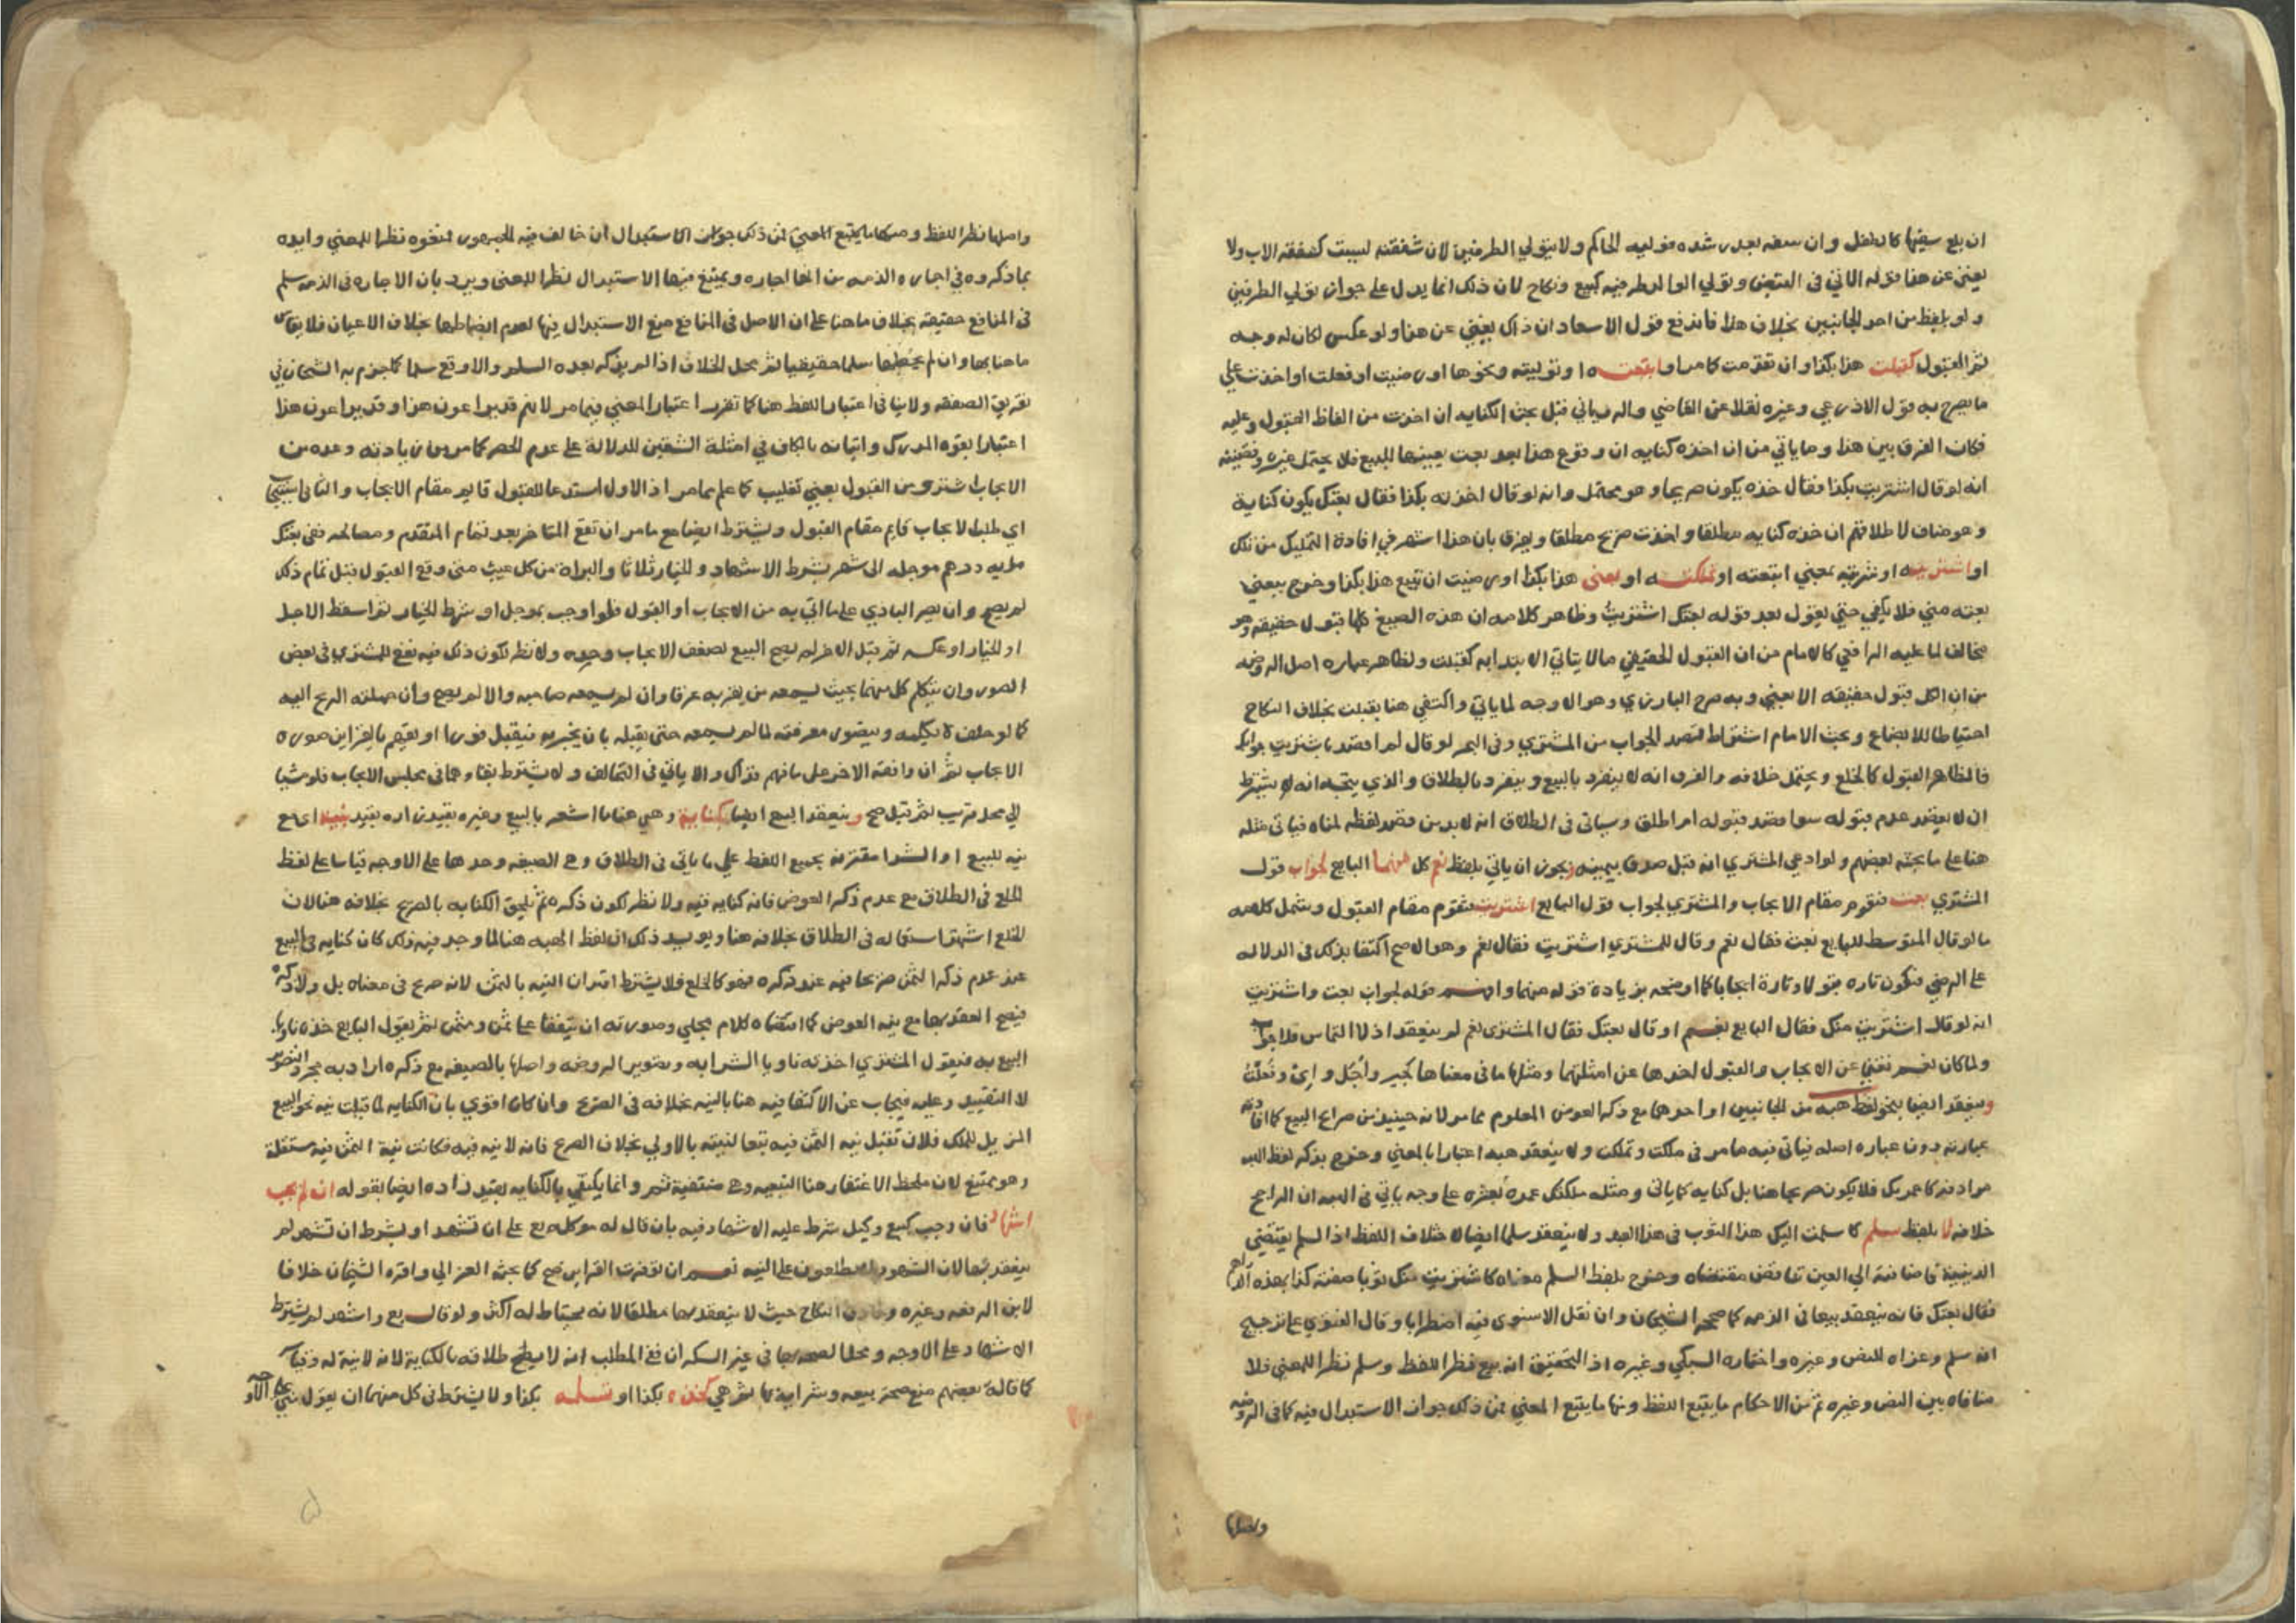 ان بلغ سفيها كالطفل وان سفه بعد رشده فوليه الحاكم ولا يتولي الطرفين لان شفقته ليست كشفقة الاب ولا
يغني عن هذا قوله الاتي في وتولي الوالد طرفيه كبيع ونكاح لان ذلك انما يدل على جواز تولي الطرفين
ولو بلفظ من احد الجانبين بخلاف هذا فاندفع قول الاسعاد ان ذاك يغني عن هذا ولو عكس لكان له وجه
ثم القبول كقبلت هذا بكذا وان تقدمت كما مر او ابتعت ه او توليته ونحوها او رضيت او فعلت او اخذت علي
ما يصرح به قول الاذرعي وغيره نقلا عن القاضي والروياني قبل بحث الكناية ان اخذت من الفاظ القبول وعليه
فكان الفرق بين هذا وما ياتي من ان اخذه كناية ان وقوع هذا بعد بعت يعينها للبيع فلا يحتمل غيره وقضيته
انه لو قال اشتريت بكذا فقال خذه يكون صريحا وهو محتمل وانه لو قال اخذته بكذا فقال بعتك يكون كناية
وهو مناف لاطلاقهم ان خذه كناية مطلقا واخذت صريح مطلقا ويفرق بان هذا اشهر في افادة التمليك من تلك
او اشتريت ه او شريته بمعني ابتعته او تملكت ه او بعني هذا بكذا او رضيت ان تبيع هذا بكذا وخرج ببعني
بعته مني فلا يكفي حتي يقول بعد قوله بعتك اشتريت وظاهر كلامه ان هذه الصيغ كلها قبول حقيقة وهو
مخالف لما عليه الرافعي كالامام من ان القبول الحقيقي ما لا يتاتي الابتدا به كقبلت ولظاهر عبارة اصل الروضة
من ان الكل قبول حقيقة الا بعني وبه صرح البارزي وهو الاوجه لما ياتي واكتفي هنا بقبلت بخلاف النكاح
احتياطا للابضاع وبحث الامام اشتراط قصد الجواب من المشتري وفي البحر لو قال لم اقصد باشتريت جوابك
فالظاهر القبول كالخلع ويحتمل خلافه والفرق انه لا ينفرد بالبيع وينفرد بالطلاق والذي يتجه انه لا يشترط
ان لا يقصد عدم قبوله سوا قصد قبوله ام اطلق وسياتي في الطلاق انه لا بد من قصد لفظه لمناه فياتي مثله
هنا على ما بحثه بعضهم ولو ادعي المشتري انه قبل صدق بيمينه ويجوز ان ياتي بلفظ نعم كل منهما البايع لجواب قول
المشتري بعت فتقوم مقام الايجاب والمشتري لجواب قول البايع اشتريت فتقوم مقام القبول وشمل كلامه
ما لو قال المتوسط للبايع بعت فقال نعم وقال للمشتري اشتريت فقال نعم وهو الاصح اكتفا بذلك في الدلالة
على الرضي فتكون تارة قبولا وتارة ايجابا كما اوضحه بزيادة قوله منهما وافهم قوله لجواب بعت واشتريت
انه لو قال اشتريت منك فقال البايع نعم او قال بعتك فقال المشتري نعم لم ينعقد اذ لا التماس فلا جواب
ولما كان نعم تغني عن الايجاب والقبول اخرها عن امثلتهما ومثلها ما في معناها كجير وأجل و اي وفعلت
وينعقد ايضا بنحو لفظ هبه من الجانبين او احدهما مع ذكر العوض المعلوم مما مر لانه حينئذ من صرايح البيع كما افادته
عبارته دون عبارة اصله فياتي فيه ما مر في ملكت وتملكت ولا ينعقد هبه اعتبارا بالمعني وخرج بذكر لفظ الهبه
مرادفه كاعمرتك فلا يكون صريحا هنا بل كناية كما ياتي ومثله ملكتك عمره بعشره على وجه ياتي في الهبه ان الراجح
خلافه لا بلفظ سلم كاسلمت اليك هذا الثوب في هذا العبد ولا ينعقد سلما ايضا لاختلاف اللفظ اذ السلم يقتضي
الدينية فاضافته الي العين تناقض مقتضاه وخرج بلفظ السلم معناه كاشتريت منك ثوبا صفته كذا بهذه الدراهم
فقال بعتك فانه ينعقد بيعا في الذمة كما صححه الشيخان وان نقل الاسنوي فيه اضطرابا وقال الفتوي على ترجيح
انه سلم وعزاه للنص وغيره واختاره السبكي وغيره اذ التحقيق انه بيع نظرا للفظ وسلم نظرا للمعني فلا
منافاه بين النص وغيره ثم من الاحكام ما يتبع اللفظ ومنها ما يتبع المعني فمن ذلك جواز الاستبدال فيه كما في الروضة
واصلها
واصلها نظرا للفظ ومنها ما يتبع المعني فمن ذلك جواز الاستبدال ان خالف فيه الجمهور فمنعوه نظرا للمعني وايده
بما ذكروه في اجارة الذمه من انها اجاره ويمتنع فيها الاستبدال نظرا للمعني ويرد بان الاجارة في الذمة سلم
في المنافع حقيقة بخلاف ما هنا على ان الاصل في المنافع منع الاستبدال فيها لعدم انضباطها بخلاف الاعيان فلا يقاس
ما هنا بها وان لم سلما حقيقيا ثم محل الخلاف اذا لم يذكر بعده السلم والا وقع سلما كما جزم به الشيخان في
تفريق الصفقة ولا ينافي اعتبار اللفظ هنا كما تقرر اعتبار المعني فيما مر لانهم قد يراعون هذا وقد يراعون هذا
اعتبارا بقوة المدرك واتيانه بالكاف في امثلة الشقين للدلالة على عدم الحصر كما مر من زيادته وعده من
الايجاب اشتر ومن القبول بعني تغليب كما علم مما مر اذ الاول استدعا للقبول قايم مقام الايجاب والثاني استيجاب
اي طلب الايجاب قايم مقام القبول ويشترط ايضا مع ما مر ان تقع المتاخر بعد تمام المتقدم ومصالحه ففي بعتك
بماية درهم موجلة الى شهر بشرط الاشهاد والخيار ثلاثا والبراة من كل عيب متي وقع القبول قبل تمام ذلك
لم يصح وان يصر البادي على ما اتي به من الايجاب او القبول فلو اوجب بموجل او شرط الخيار ثم اسقط الاجل
او الخيار او عكسه ثم قبل الاخر لم يصح البيع لضعف الايجاب وحده ولا نظر لكون ذلك فيه نفع للمشتري في بعض
الصور وان يتكلم كل منهما بحيث يسمعه من يقربه عرفا وان لم يسمعه صاحبه والا لم يصح وان حملته الريح اليه
كما لو حلف لا يكلمه ويتصور معرفته لما لم يسمعه حتي يقبله بان يخبر به فيقبل فورا او يفهم بالقراين صورة
الايجاب ثم ان وافقه الاخر على ما فهم فذاك والا ياتي في التحالف ولا يشترط بقاوهما في مجلس الايجاب فلو مشيا
الي محل قريب ثم قبل صح وينعقد البيع ايضا بكناية وهي هنا ما اشعر بالبيع وغيره بقيدين اده بقيد بنية اي مع
نية للبيع او الشرا مقترنة بجميع اللفظ علي ما ياتي في الطلاق وهي الصيغه وحدها على الاوجه قياسا على لفظ
الخلع في الطلاق مع عدم ذكر العوض فانه كناية فيه ولا نظر لكون ذكره ثم يلحق الكناية بالصريح بخلافه هنا لان
للخلع اشتهر استعماله في الطلاق بخلافه هنا ويويد ذلك ان لفظ الهبه هنا لما وجد فيه ذلك كان كناية في البيع
عند عدم ذكر الثمن صريحا فيه عند ذكره فهو كالخلع فلا يشترط اقتران النية بالثمن لانه صريح في معناه بل ولا ذكره
فيصح العقد بها مع نية العوض كما اقتضاه كلام مجلي وصورته ان يتفقا على ثمن ومثمن ثم يقول البايع خذه ناويا
البيع به فيقول المشتري اخذته ناويا الشرا به وتصوير الروضه واصلها بالصيغه مع ذكره ارادا به مجرد التصوير
لا التقييد وعليه فيجاب عن الاكتفا فيه هنا بالنية بخلافه في الصريح وان كان اقوي بان الكناية لما قبلت نية نحو البيع
المزيل للملك فلان تقبل نية الثمن فيه تبعا لنيته بالاولي بخلاف الصريح فانه لا نية فيه فكانت نية الثمن فيه مستقلة
وهو ممتنع لان ملحظ الاغتفار هنا التبعيه وهي منتفية ثم وانما يكتفي بالكنايه بقيد زاده ايضا بقوله ان لم يجب
اشهاد فان وجب كبيع وكيل شرط عليه الاشهاد فيه بان قال له موكله بع على ان تشهد او بشرط ان تشهد لم
ينعقد بها لان الشهود لا يطلعون على النيه نعم ان توفرت القراين صح كما بحثه الغزالي واقره الشيخان خلافا
لابن الرفعه وغيره وفارق النكاح حيث لا ينعقد بها مطلقا لانه يحتاط له اكثر ولو قال بع واشهد لم يشترط
الاشهاد على الاوجه ومحل الصحه بها في غير السكران ففي المطلب انه لا يصح طلاقه بالكناية لانه لا نية له وقياسه
كما قاله بعضهم منع صحة بيعه وشرايه بها ثم هي كخذه بكذا او تسلمه بكذا ولا يشترط في كل منهما ان يقول مني على الاوجه